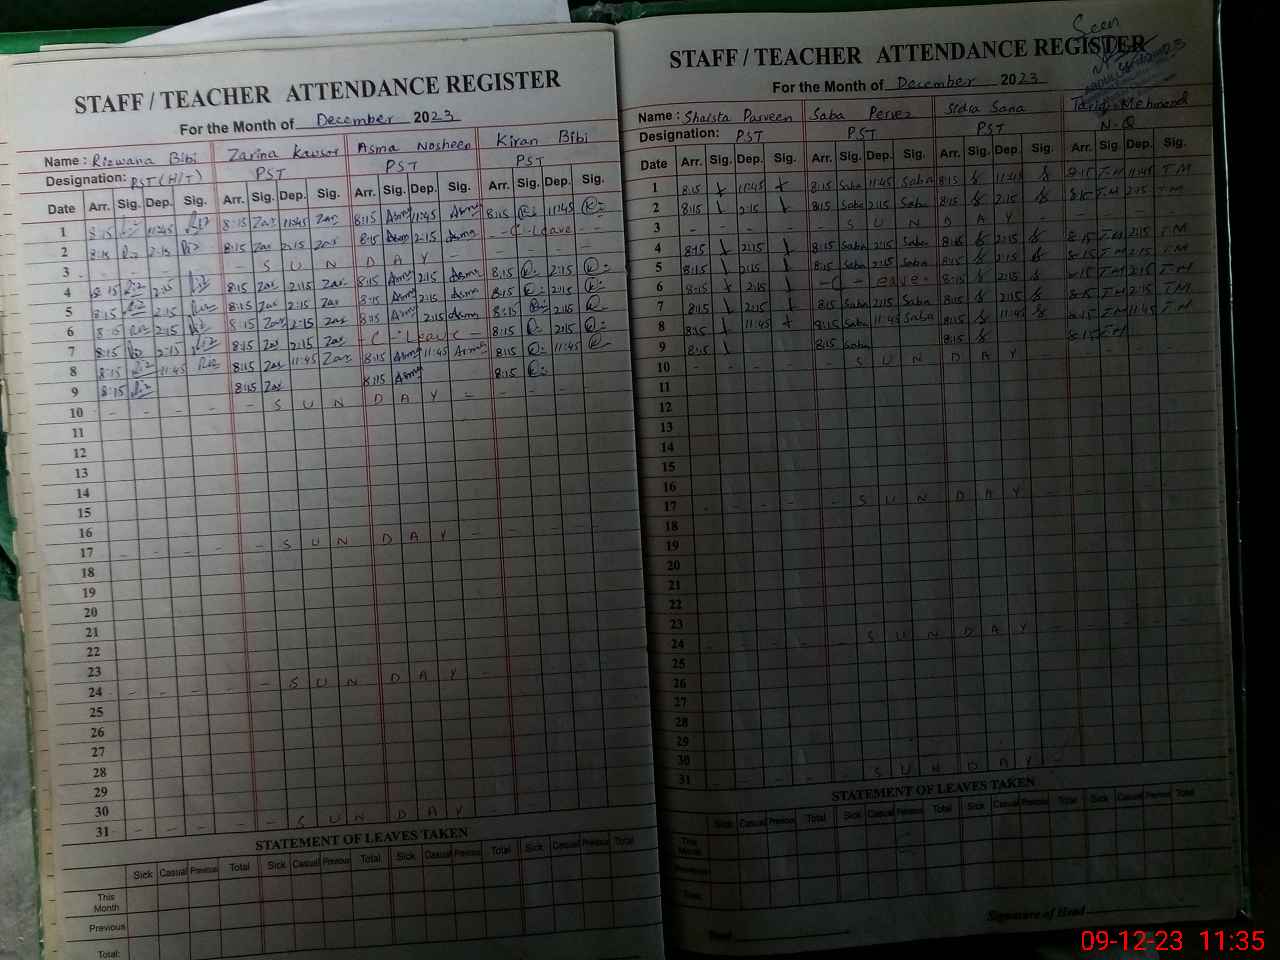 STAFF / TEACHER ATTENDANCE REGISTER
For the Month of December 2023
Name : Rizwana Bibi Zarina Kausor Asma Nosheen Kiran Bibi
Designation: PST (H/T) PST PST PST
Date Arr. Sig. Dep. Sig. Arr. Sig. Dep. Sig. Arr. Sig. Dep. Sig. Arr. Sig. Dep. Sig.
1 8:15 Riz 11:45 Riz 8:15 Zar 11:45 Zar 8:15 Asma 11:45 Asma 8:15 K 11:45 K
2 8:15 Riz 2:15 Riz 8:15 Zar 2:15 Zar 8:15 Asma 2:15 Asma - C - Leave - -
3 - - - - - S U N D A Y - - - - -
4 8:15 Riz 2:15 Riz 8:15 Zar 2:15 Zar 8:15 Asma 2:15 Asma 8:15 K 2:15 K
5 8:15 Riz 2:15 Riz 8:15 Zar 2:15 Zar 8:15 Asma 2:15 Asma 8:15 K 2:15 K
6 8:15 Riz 2:15 Riz 8:15 Zar 2:15 Zar 8:15 Asma 2:15 Asma 8:15 K 2:15 K
7 8:15 Riz 2:15 Riz 8:15 Zar 2:15 Zar - C - Leave - 8:15 K 2:15 K
8 8:15 Riz 11:45 Riz 8:15 Zar 11:45 Zar 8:15 Asma 11:45 Asma 8:15 K 11:45 K
9 8:15 Riz 8:15 Zar 8:15 Asma 8:15 K
10 - - - - - S U N D A Y - - - - -
11
12
13
14
15
16
17 - - - - - S U N D A Y - - - - -
18
19
20
21
22
23
24 - - - - - S U N D A Y - - - - -
25
26
27
28
29
30
31 - - - - - S U N D A Y - - -
STATEMENT OF LEAVES TAKEN
Sick Casual Previous Total Sick Casual Previous Total Sick Casual Previous Total Sick Casual Previous Total
This Month
Previous
Total:
Seen
STAFF / TEACHER ATTENDANCE REGISTER
For the Month of December 2023
Name : Shaista Parveen Saba Pervez Sidra Sana Tariq Mehmood
Designation: PST PST PST N-Q
Date Arr. Sig. Dep. Sig. Arr. Sig. Dep. Sig. Arr. Sig. Dep. Sig. Arr. Sig. Dep. Sig.
1 8:15 11:45 8:15 Saba 11:45 Saba 8:15 11:45 8:15 T.M 11:45 T.M
2 8:15 2:15 8:15 Saba 2:15 Saba 8:15 2:15 8:15 T.M 2:15 T.M
3 - - - - - S U N D A Y - - - - -
4 8:15 2:15 8:15 Saba 2:15 Saba 8:15 2:15 8:15 T.M 2:15 T.M
5 8:15 2:15 8:15 Saba 2:15 Saba 8:15 2:15 8:15 T.M 2:15 T.M
6 8:15 2:15 - C - eave - 8:15 2:15 8:15 T.M 2:15 T.M
7 8:15 2:15 8:15 Saba 2:15 Saba 8:15 2:15 8:15 T.M 2:15 T.M
8 8:15 11:45 8:15 Saba 11:45 Saba 8:15 11:45 8:15 T.M 11:45 T.M
9 8:15 8:15 Saba 8:15 8:15 T.M
10 - - - - - S U N D A Y - - - - -
11
12
13
14
15
16
17 - - - - - S U N D A Y - - - -
18
19
20
21
22
23
24 - - - - - S U N D A Y - - - - -
25
26
27
28
29
30
31 - - - - - S U N D A Y -
STATEMENT OF LEAVES TAKEN
Sick Casual Previous Total Sick Casual Previous Total Sick Casual Previous Total Sick Casual Previous Total
This Month
Previous
Total:
Signature of Head
09-12-23 11:35